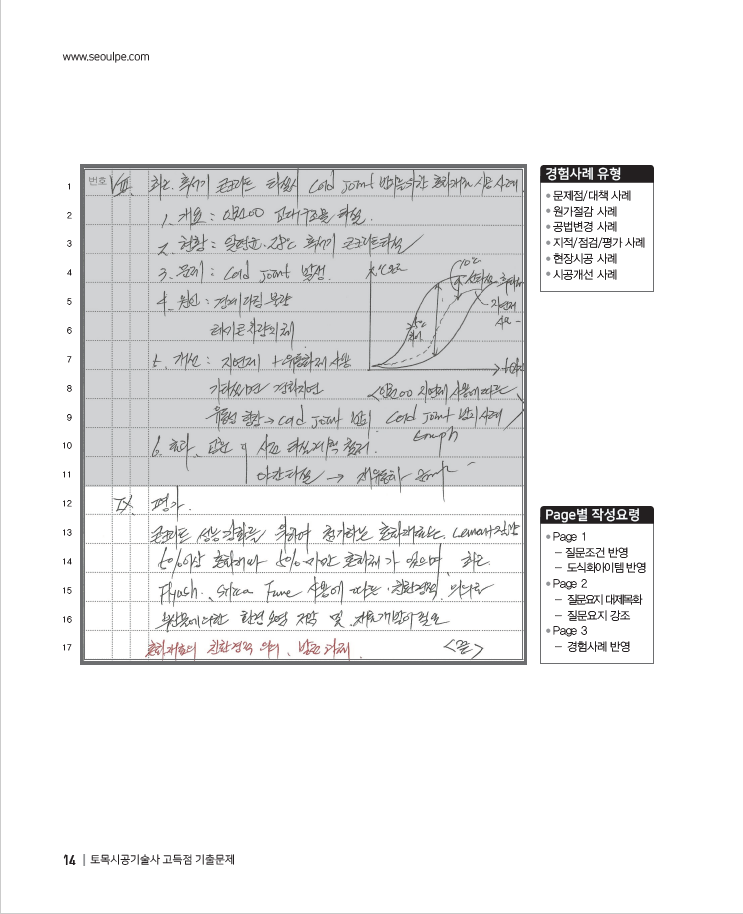 www.seoulpe.com
번호
1
VIII. 최근 혹서기 콘크리트 타설시 Cold Joint 방지를 위한 혼화재료 시공 사례
2
1. 개요 : 교대구조물 타설
3
2. 현황 : 일평균 28℃ 혹서기 콘크리트 타설
4
3. 문제 : Cold Joint 발생
5
4. 원인 : 경계다짐 불량
6
레미콘 차량 지체
7
5. 개선 : 지연제 + 유동화제 사용
8
경화지연
9
유동성 향상 → Cold Joint 방지
10
6. 효과, 교훈 및 사전 타설계획 철저
11
야간타설 →
지연제
Cold Joint 방지 사례
Graph
12
IX. 평가
13
콘크리트 성능 강화를 위하여 첨가하는 혼화재료는 Cement 질량
14
5% 이상 혼화재와 5% 미만 혼화제가 있으며, 최근
15
Flyash, Silica Fume 사용에 따른 친환경적
16
환경오염 저감 및 재료개발이 필요
17
혼화재료의 친환경적 의미, 발전과제 <끝>
경험사례 유형
• 문제점/대책 사례
• 원가절감 사례
• 공법변경 사례
• 지적/점검/평가 사례
• 현장시공 사례
• 시공개선 사례
Page별 작성요령
• Page 1
– 질문조건 반영
– 도식화아이템 반영
• Page 2
– 질문요지 대제목화
– 질문요지 강조
• Page 3
– 경험사례 반영
14 | 토목시공기술사 고득점 기출문제